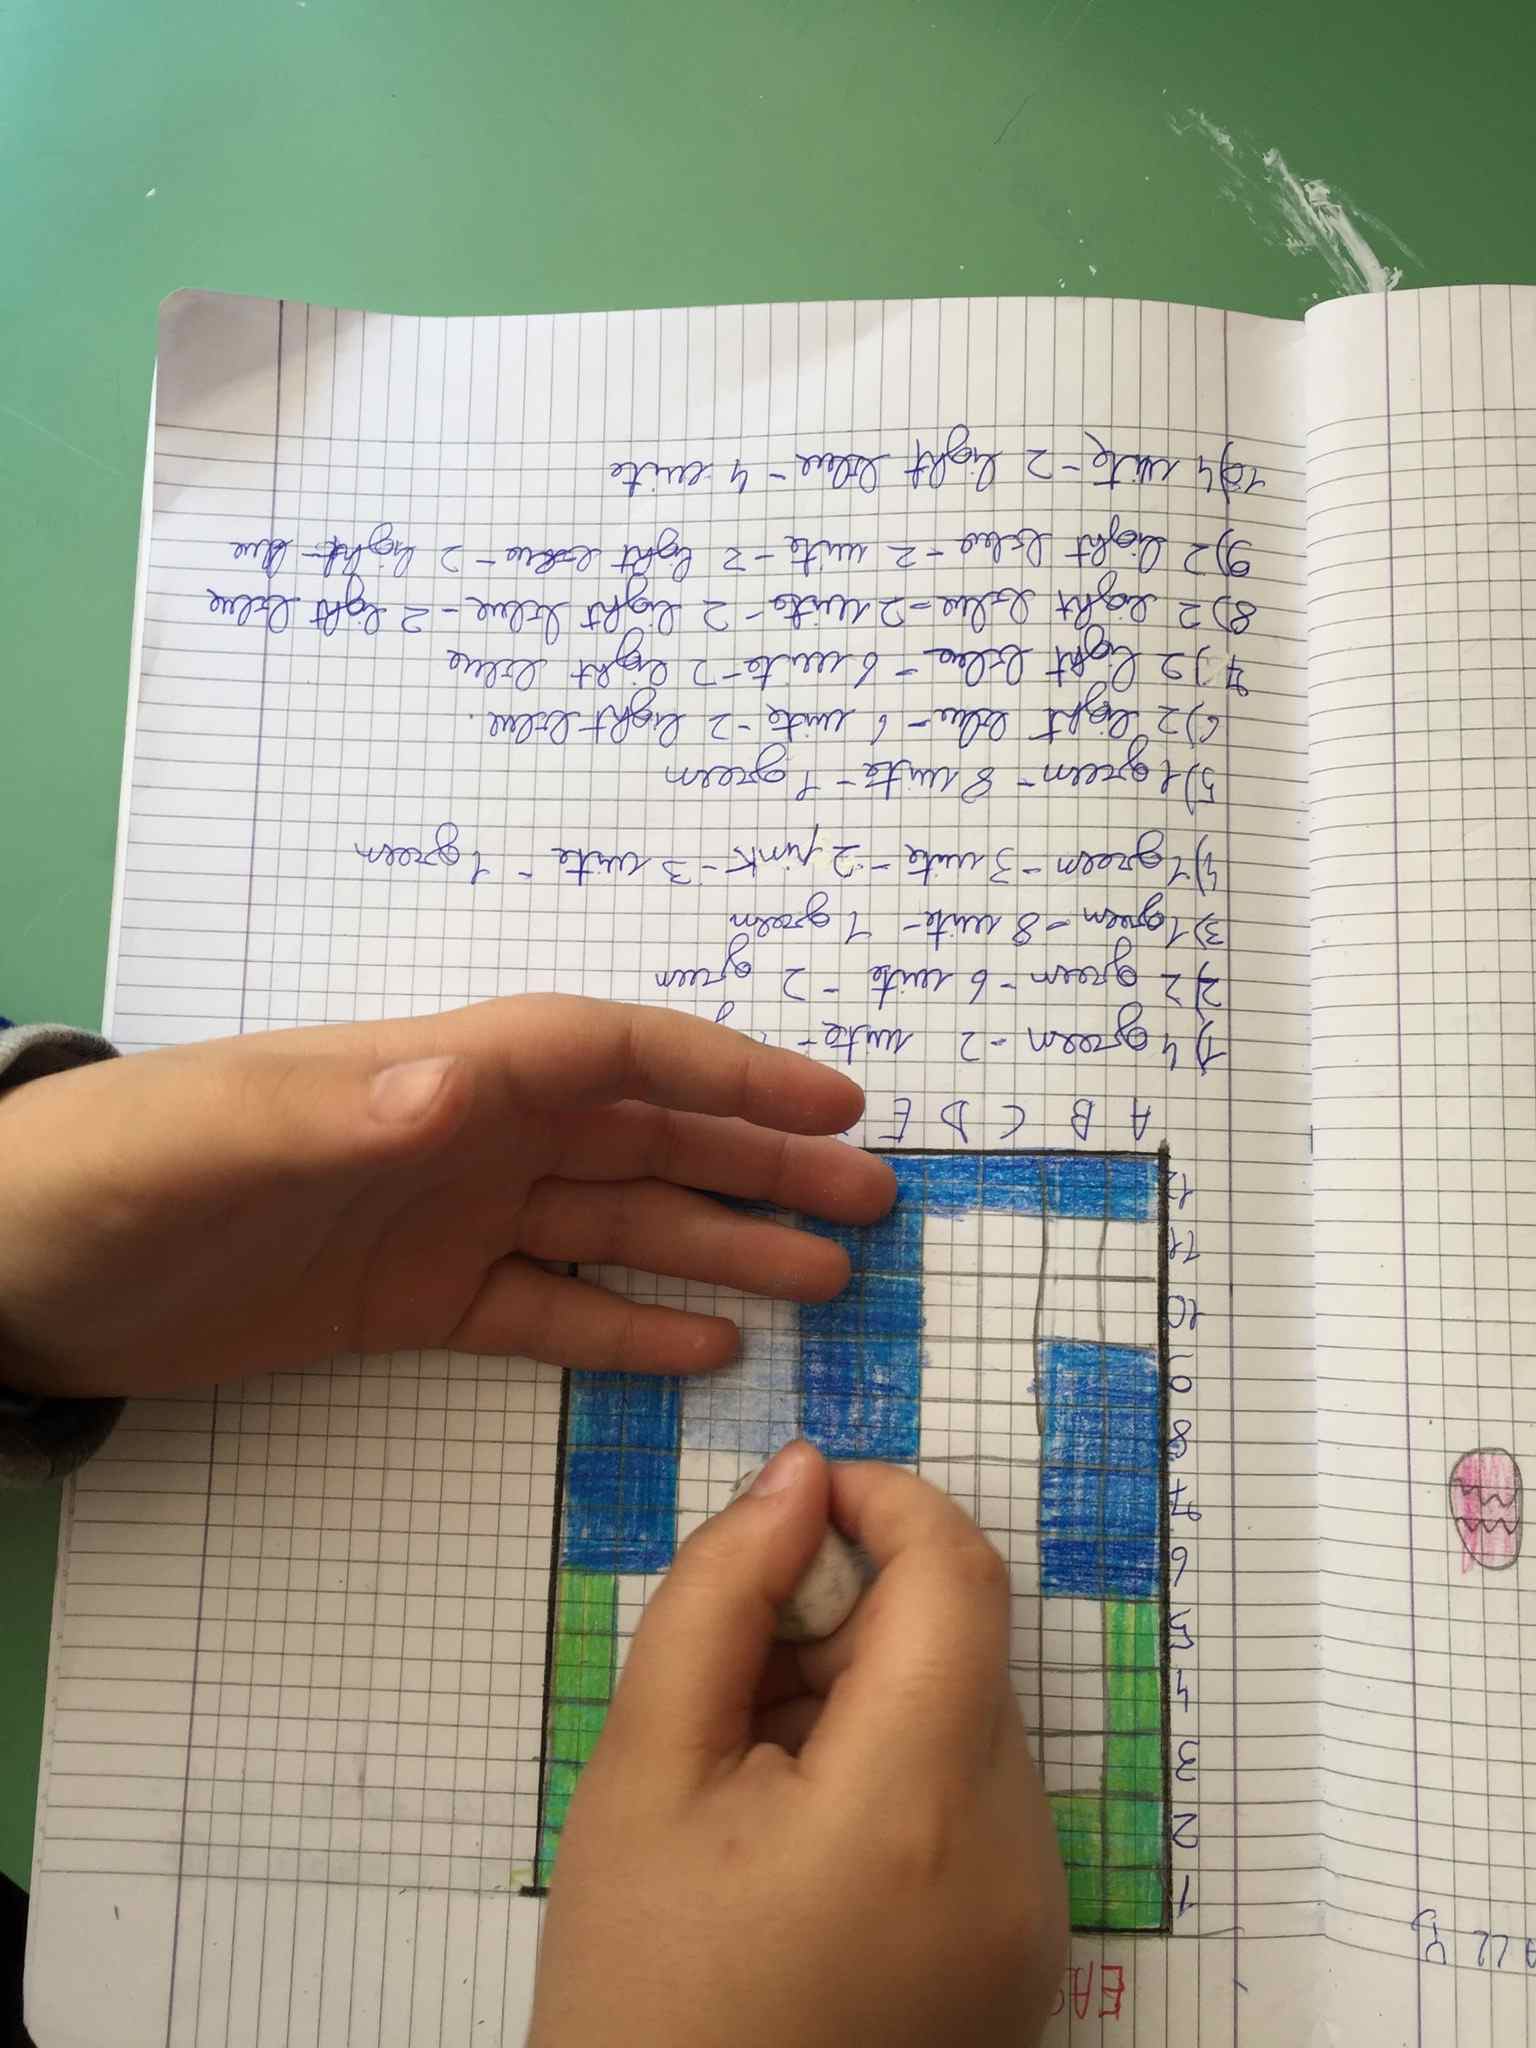 EAS
1
2
3
4
5
6
7
8
9
10
11
12
A B C D E
1) 4 green - 2 wite -
2) 2 green - 6 wite - 2 green
3) 1 green - 8 wite - 1 green
4) 1 green - 3 wite - 2 pink - 3 wite - 1 green
5) 1 green - 8 wite - 1 green
6) 2 light blue - 6 wite - 2 light blue.
7) 2 light blue - 6 wite - 2 light blue
8) 2 light blue - 2 wite - 2 light blue - 2 light blue
9) 2 light blue - 2 wite - 2 light blue - 2 light blue
10) 4 wite - 2 light blue - 4 wite